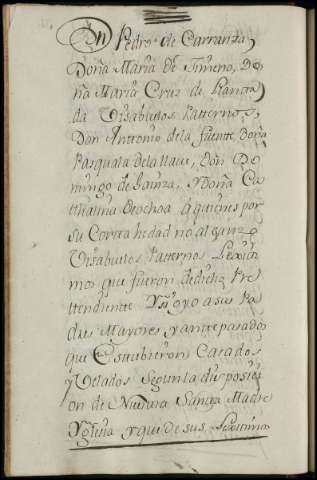 Dn Pedro de Carranza,
Doña Maria de Timeno, Do
ña Maria Cruz de
da Visabuelos Patternos,
Don Antonio dela fuente Doña
Pasquala dela llave, Don Do
mingo de Ganza, y Doña Ca
tthalina Deochoa á quienes por
su Cortta hedad no alganzo
Visabuelos Patternos Lexiti
mos que fueron dedicho Pre
ttendiente y Suoyo a sus Pa
dres Mayores y anttepasados
que Esttubieron Casados
y Velados Segun la disposizi
on de Nuestra Santta Madre
Yglesia y que de sus Lexitimos